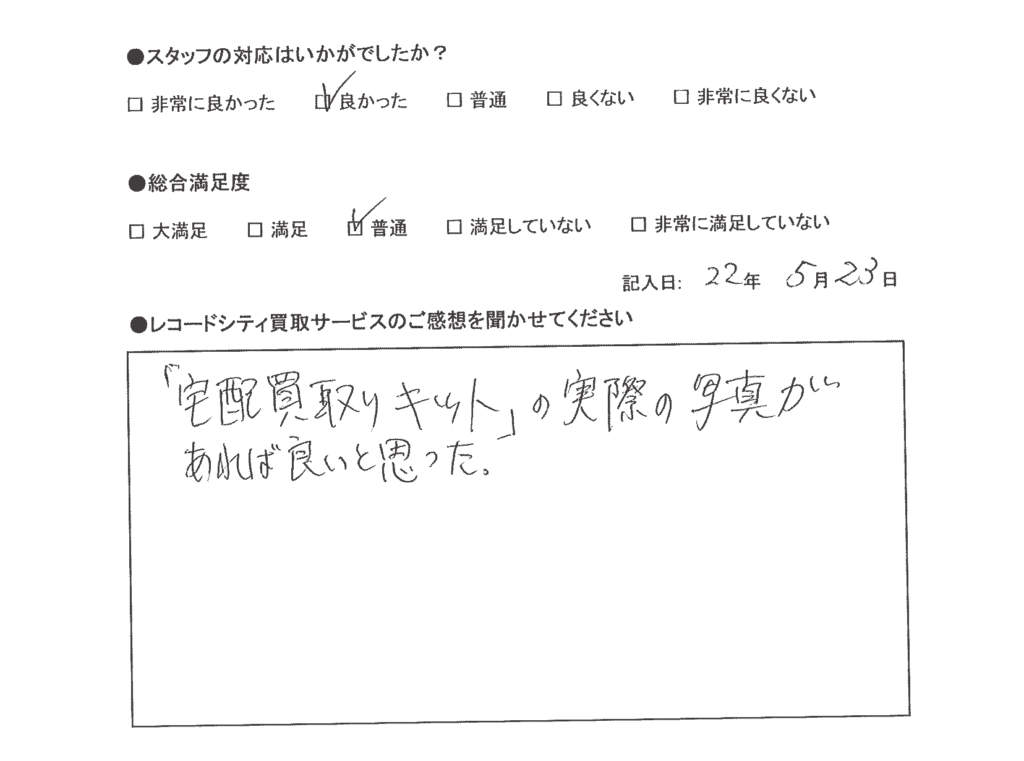 ●スタッフの対応はいかがでしたか？
□ 非常に良かった ☑ 良かった □ 普通 □ 良くない □ 非常に良くない
●総合満足度
□ 大満足 □ 満足 ☑ 普通 □ 満足していない □ 非常に満足していない
記入日: 22年 5月23日
●レコードシティ買取サービスのご感想を聞かせてください
「宅配買取りキット」の実際の写真が
あれば良いと思った。